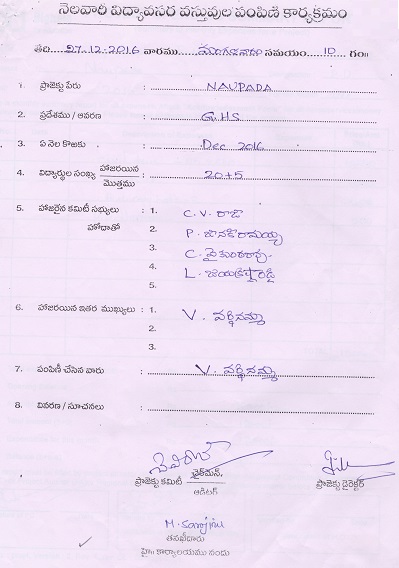 నెలవారీ విద్యావసర వస్తువుల పంపిణి కార్యక్రమం
తేది..27.12.2016 వారము.....మంగళవారం సమయం.....10.....గం॥
1. ప్రాజెక్టు పేరు : NAUPADA
2. ప్రదేశము / ఆవరణ : G.HS
3. ఏ నెల కొఱకు : Dec 2016
4. విద్యార్థుల సంఖ్య హాజరయిన / మొత్తము : 20+5
5. హాజరైన కమిటీ సభ్యులు : 1. C.V. రాజు
హోదాతో 2. P. జానకిరామయ్య
3. C. వైకుంఠరావు
4. L.
5.
6. హాజరయిన ఇతర ముఖ్యులు : 1. V.
2.
3.
7. పంపిణీ చేసిన వారు : V.
8. వివరణ / సూచనలు :
ప్రాజెక్టు కమిటీ ఛైర్మన్, ప్రాజెక్టు డైరెక్టర్
ఆడిటర్
M. Sarojini
తనఖీదారు
హై॥ కార్యాలయము నందు